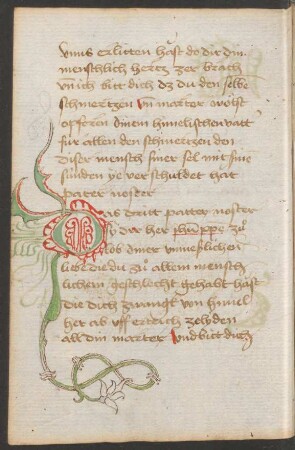 vnns erlitten hăst do dir din
menschlich hertz zer brach
vn ich bitt dich dz du den selbē
schmertzen vn marter wölist
opfferen dinem himelischen vatt
für allen den schmertzen den
diser mensch siner sel mit sinē
sünden ye verschuldet hat
pater noster
Das dritt patter noster
sy dir her
lob diner vnmeßlichen
liebe die du zů allem mensch
lichem geschlecht gehabt hăst
die dich zwang von himel
her ab vff ertrich ze lyden
all din marter vnd bitt dich